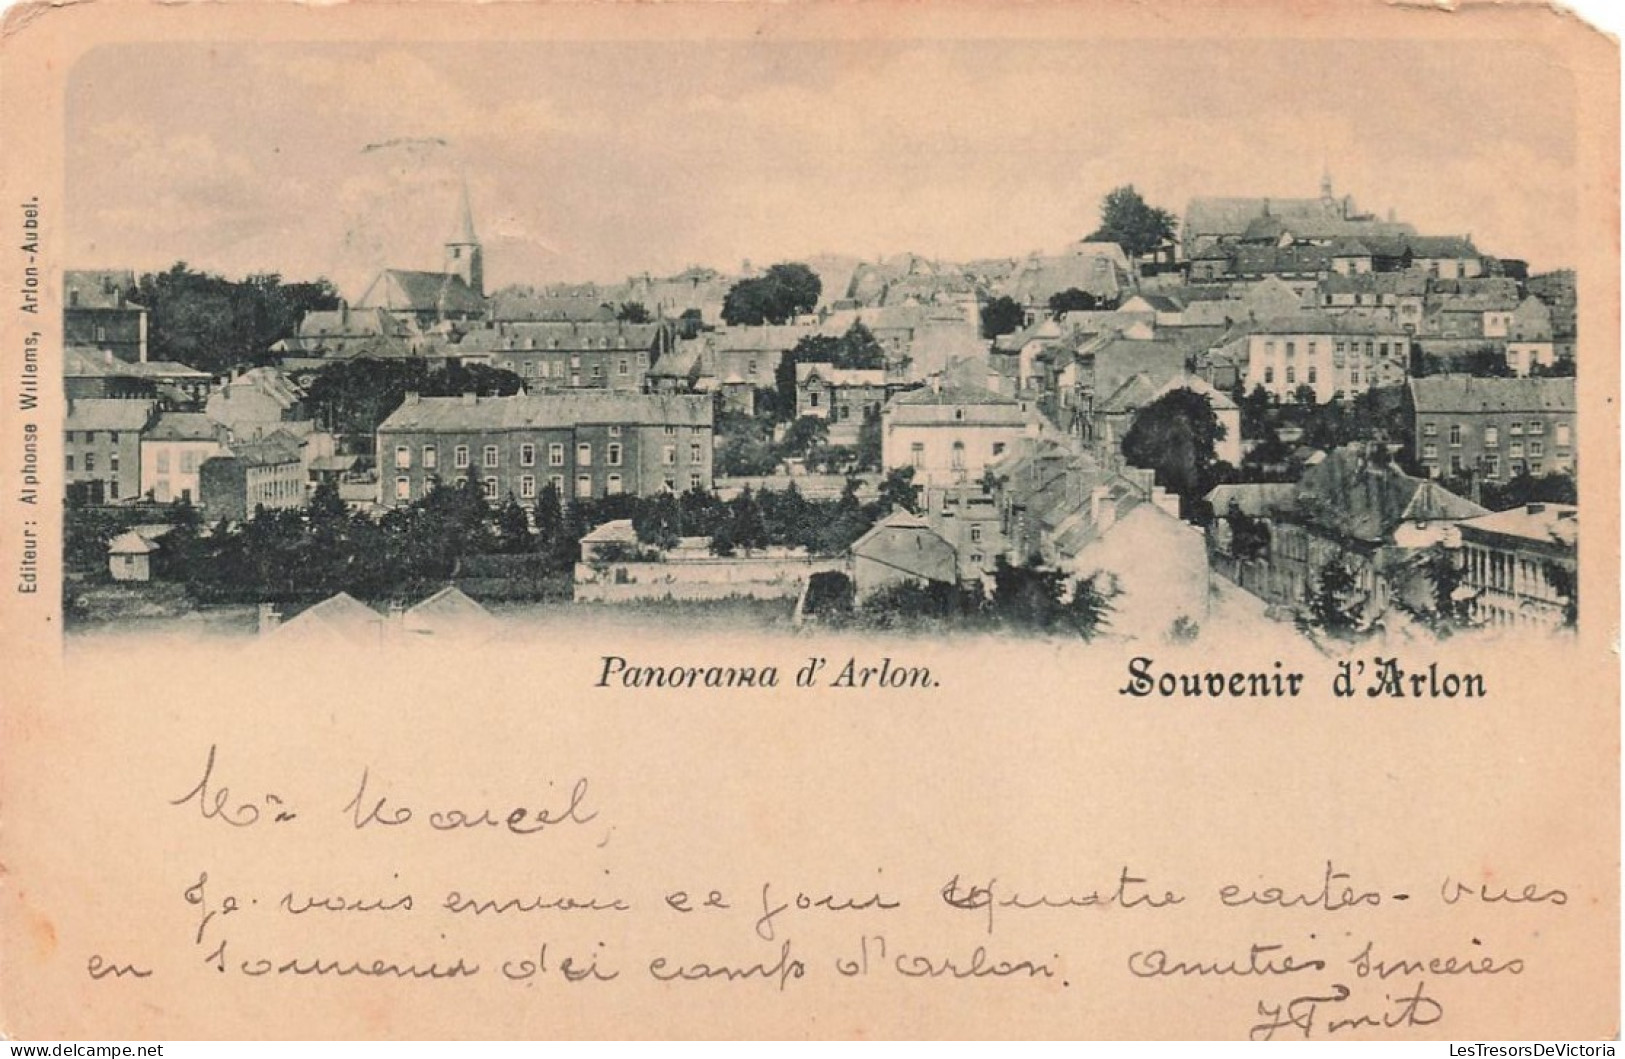 Editeur: Alphonse Willems, Arlon-Aubel.
Panorama d'Arlon.
Souvenir d'Arlon
Marcel,
Je vous envoie ce jour quatre cartes-vues
en souvenir du camp d'Arlon. Amitiés sincères
www.delcampe.net
LesTresorsDeVictoria